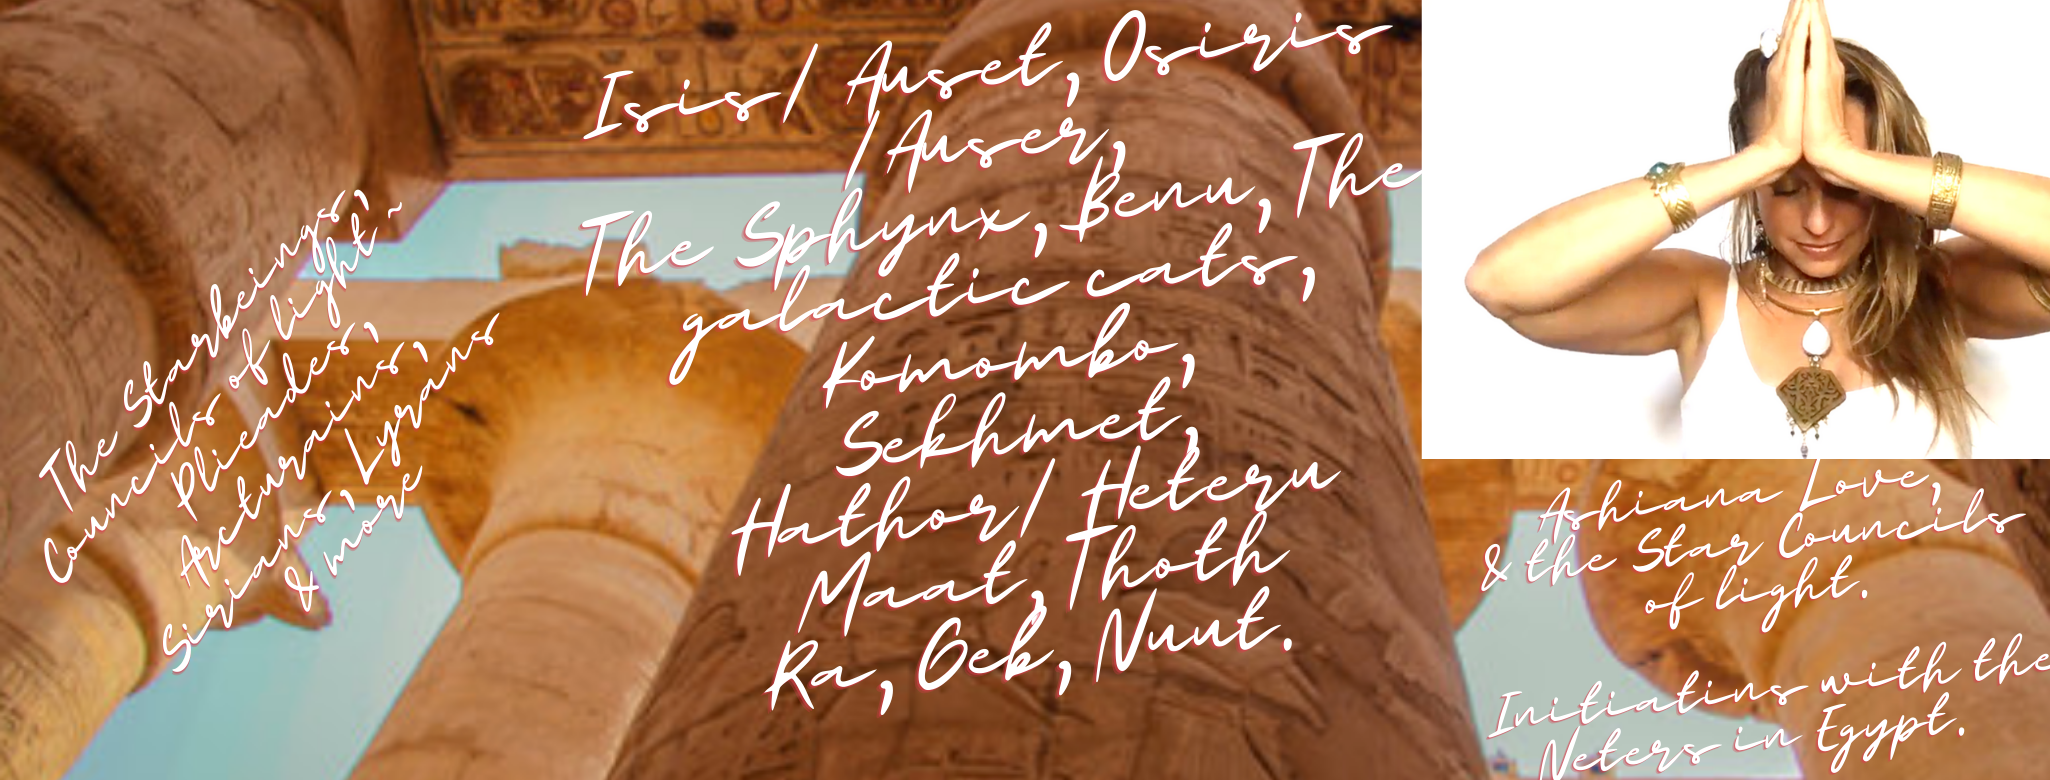 The Starbeings,
Councils of light ~
Plieades,
Arcturains,
Sirians, Lyrans
& more
Isis/ Auset, Osiris
/Auser,
The Sphynx, Benu, The
galactic cats,
Komombo,
Sekhmet,
Hathor/ Heteru
Maat, Thoth
Ra, Geb, Nuut.
Ashiana Love,
& the Star Councils
of light.
Initiatins with the
Neters in Egypt.